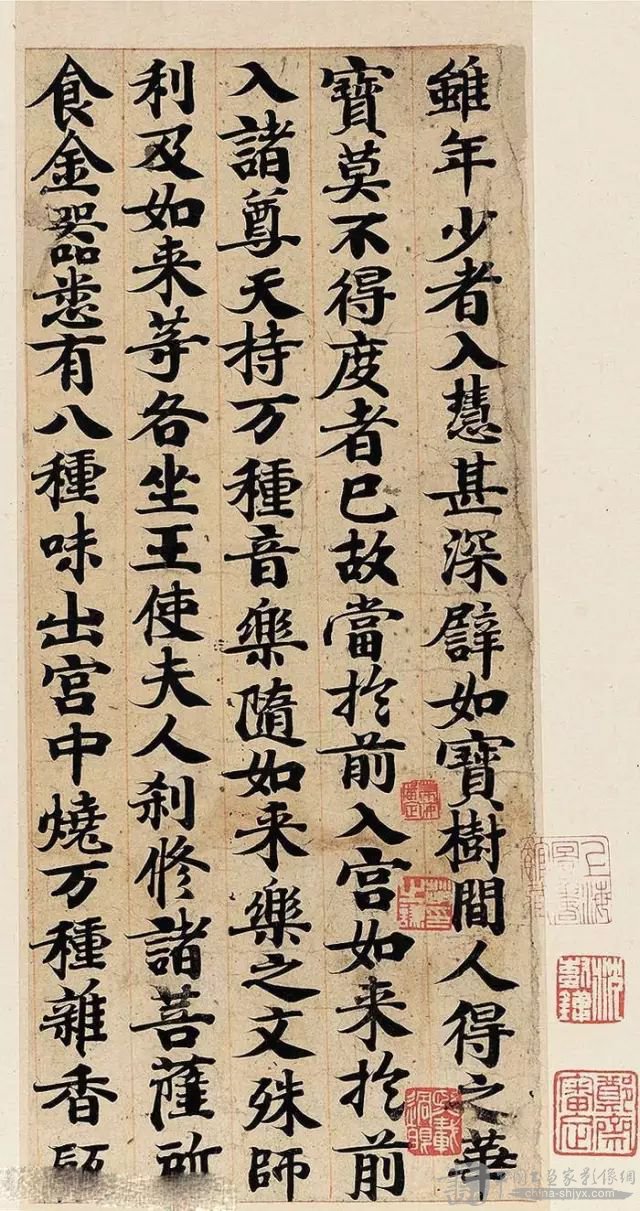 雖年少者入慧甚深譬如寶樹間人得之華
寶莫不得度者已故當扵前入宮如来扵前
入諸尊天持万種音樂隨如来樂之文殊師
利及如来等各坐王使夫人剎修諸菩薩所
食金器悉有八種味出宮中燒万種雜香
china-shjyx.com